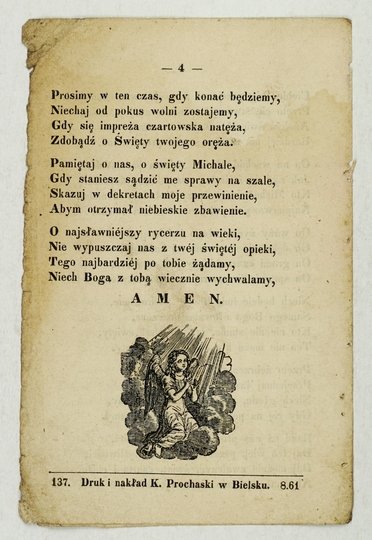 — 4 —
Prosimy w ten czas, gdy konać będziemy,
Niechaj od pokus wolni zostajemy,
Gdy się impreża czartowska natęża,
Zdobądź o Święty twojego oręża.
Pamiętaj o nas, o święty Michale,
Gdy staniesz sądzić me sprawy na szale,
Skazuj w dekretach moje przewinienie,
Abym otrzymał niebieskie zbawienie.
O najsławniéjszy rycerzu na wieki,
Nie wypuszczaj nas z twéj świętéj opieki,
Tego najbardziéj po tobie żądamy,
Niech Boga z tobą wiecznie wychwalamy,
AMEN.
137. Druk i nakład K. Prochaski w Bielsku. 8.61